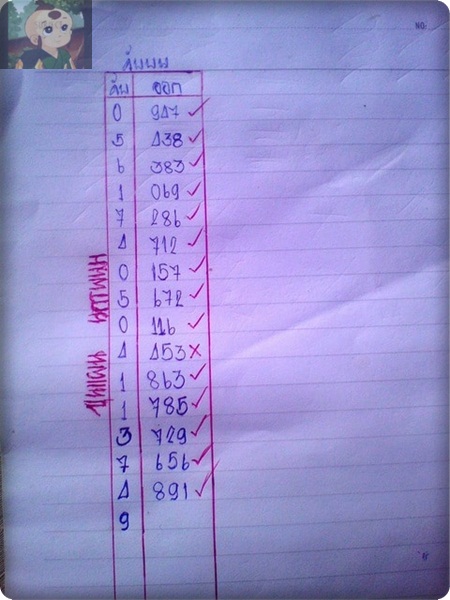 NO.
ลับบน
ลับ ออก
0 947 ✓
5 438 ✓
6 383 ✓
1 069 ✓
7 286 ✓
4 712 ✓
0 157 ✓
5 672 ✓
0 116 ✓
4 453 ×
1 863 ✓
1 785 ✓
3 729 ✓
7 656 ✓
4 891 ✓
9